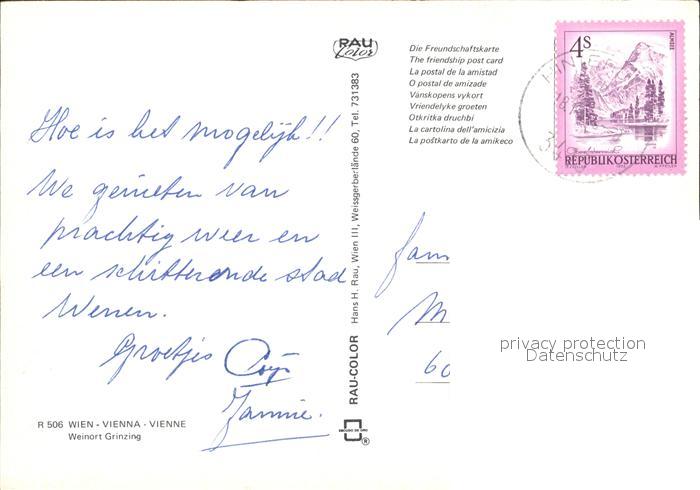 Hoe is het mogelijk!!
We genieten van
prachtig weer en
een schitterende stad
Wenen.
Groetjes
Jannie.
R 506 WIEN - VIENNA - VIENNE
Weinort Grinzing
RAU
Color
RAU-COLOR Hans H. Rau, Wien III, Weissgerberlände 60, Tel. 731383
®
Die Freundschaftskarte
The friendship post card
La postal de la amistad
O postal de amizade
Vänskopens vykort
Vriendelyke groeten
Otkritka druchbi
La cartolina dell'amicizia
La poŝtkarto de la amikeco
4S
ALMSEE
REPUBLIK ÖSTERREICH
Fam
M
60
privacy protection
Datenschutz